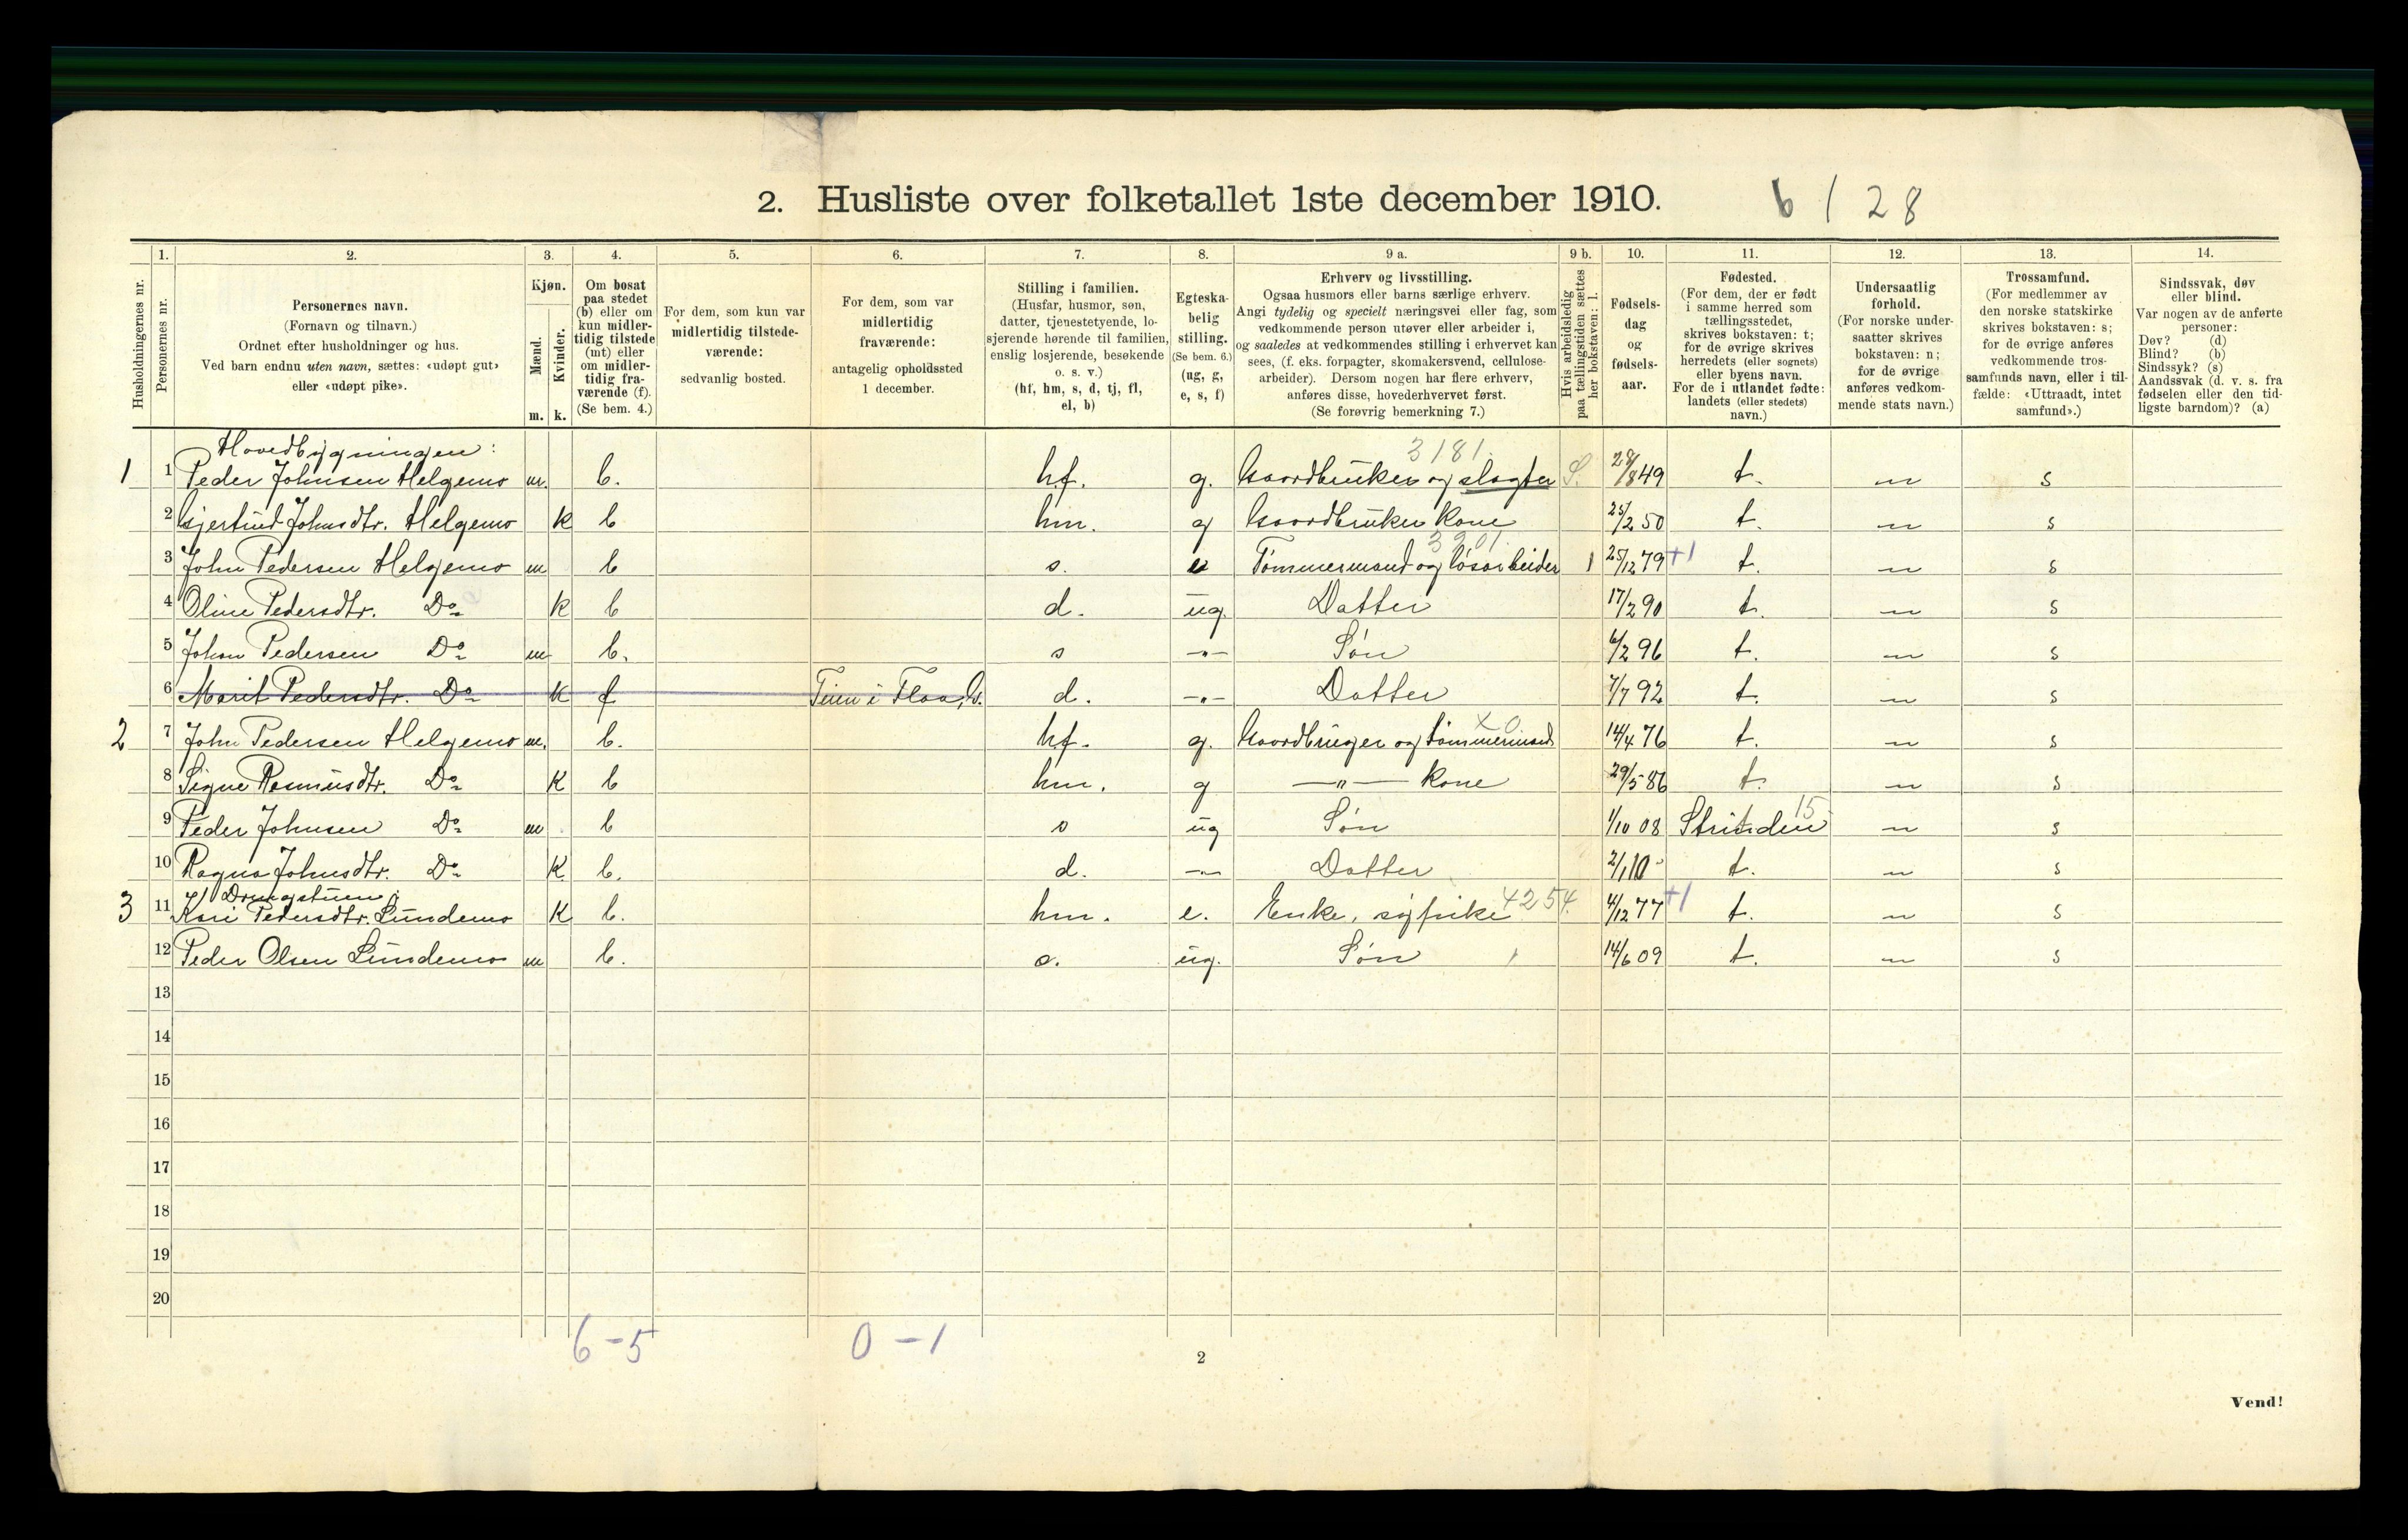 2. Husliste over folketallet 1ste december 1910. 6 / 28
Husholdningernes nr.
1.
Personernes nr.
2.
Personernes navn.
(Fornavn og tilnavn.)
Ordnet efter husholdninger og hus.
Ved barn endnu uten navn, sættes: «udøpt gut»
eller «udøpt pike».
3.
Kjøn.
Mænd.
Kvinder.
m. k.
4.
Om bosat
paa stedet
(b) eller om
kun midler-
tidig tilstede
(mt) eller
om midler-
tidig fra-
værende (f).
(Se bem. 4.)
5.
For dem, som kun var
midlertidig tilstede-
værende:
sedvanlig bosted.
6.
For dem, som var
midlertidig
fraværende:
antagelig opholdssted
1 december.
7.
Stilling i familien.
(Husfar, husmor, søn,
datter, tjenestetyende, lo-
sjerende hørende til familien,
enslig losjerende, besøkende
o. s. v.)
(hf, hm, s, d, tj, fl,
el, b)
8.
Egteska-
belig
stilling.
(Se bem. 6.)
(ug, g,
e, s, f)
9 a.
Erhverv og livsstilling.
Ogsaa husmors eller barns særlige erhverv.
Angi tydelig og specielt næringsvei eller fag, som
vedkommende person utøver eller arbeider i,
og saaledes at vedkommendes stilling i erhvervet kan
sees, (f. eks. forpagter, skomakersvend, cellulose-
arbeider). Dersom nogen har flere erhverv,
anføres disse, hovederhvervet først.
(Se forøvrig bemerkning 7.)
9 b.
Hvis arbeidsledig
paa tællingstiden sættes
her bokstaven: l.
10.
Fødsels-
dag
og
fødsels-
aar.
11.
Fødested.
(For dem, der er født
i samme herred som
tællingsstedet,
skrives bokstaven: t;
for de øvrige skrives
herredets (eller sognets)
eller byens navn.
For de i utlandet fødte:
landets (eller stedets)
navn.)
12.
Undersaatlig
forhold.
(For norske under-
saatter skrives
bokstaven: n;
for de øvrige
anføres vedkom-
mende stats navn.)
13.
Trossamfund.
(For medlemmer av
den norske statskirke
skrives bokstaven: s;
for de øvrige anføres
vedkommende tros-
samfunds navn, eller i til-
fælde: «Uttraadt, intet
samfund».)
14.
Sindssvak, døv
eller blind.
Var nogen av de anførte
personer:
Døv? (d)
Blind? (b)
Sindssyk? (s)
Aandssvak (d. v. s. fra
fødselen eller den tid-
ligste barndom)? (a)
Hovedbygningen: 3181.
1 1 Peder Johnsen Helgemo m. b. hf. g. Gaardbruker og slagter S. 28/8 49 t. n s
2 Gjertrud Johnsdtr. Helgemo k b hm. g Gaardbruker Kone 25/2 50 t. n s
3201.
3 John Pedersen Helgemo m b s. e Tømmermand og løsarbeider l 25/12 79 +1 t. n s
4 Oline Pedersdtr. Do k b d. ug. Datter 17/2 90 t. n s
5 Johan Pedersen Do m b. s -"- Søn 6/2 96 t. n s
6 Marit Pedersdtr. Do k f Teien i Flaa, G. d. -"- Datter 7/7 92 t. n s
X0
2 7 John Pedersen Helgemo m. b. hf. g. Gaardbruger og tømmermand 14/4 76 t. n s
8 Signe Rasmusdtr. Do K b hm. g -"- Kone 29/5 86 t. n s
9 Peder Johnsen Do m b s ug Søn 1/10 08 Strinden 15 n s
10 Ragna Johnsdtr. Do K b. d. -"- Datter 2/1 10 t. n s
Drengstuen:
3 11 Kari Pedersdtr. Lundemo K b. hm. e. Enke, sypike 4254. 4/12 77 +1 t. n s
12 Peder Olsen Lundemo m b. s. ug. Søn 14/6 09 t. n s
13
14
15
16
17
18
19
20
6-5 0-1
2
Vend!